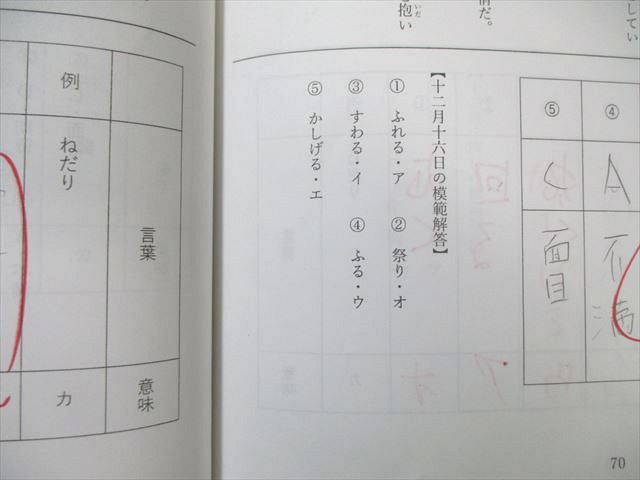 してい
情だ。
抱い
いだ
④
A
不満
⑤
く
面目
【十二月十六日の模範解答】
① ふれる・ア ② 祭り・オ
③ すわる・イ ④ ふる・ウ
⑤ かしげる・エ
70
言葉
意味
例
ねだり
カ